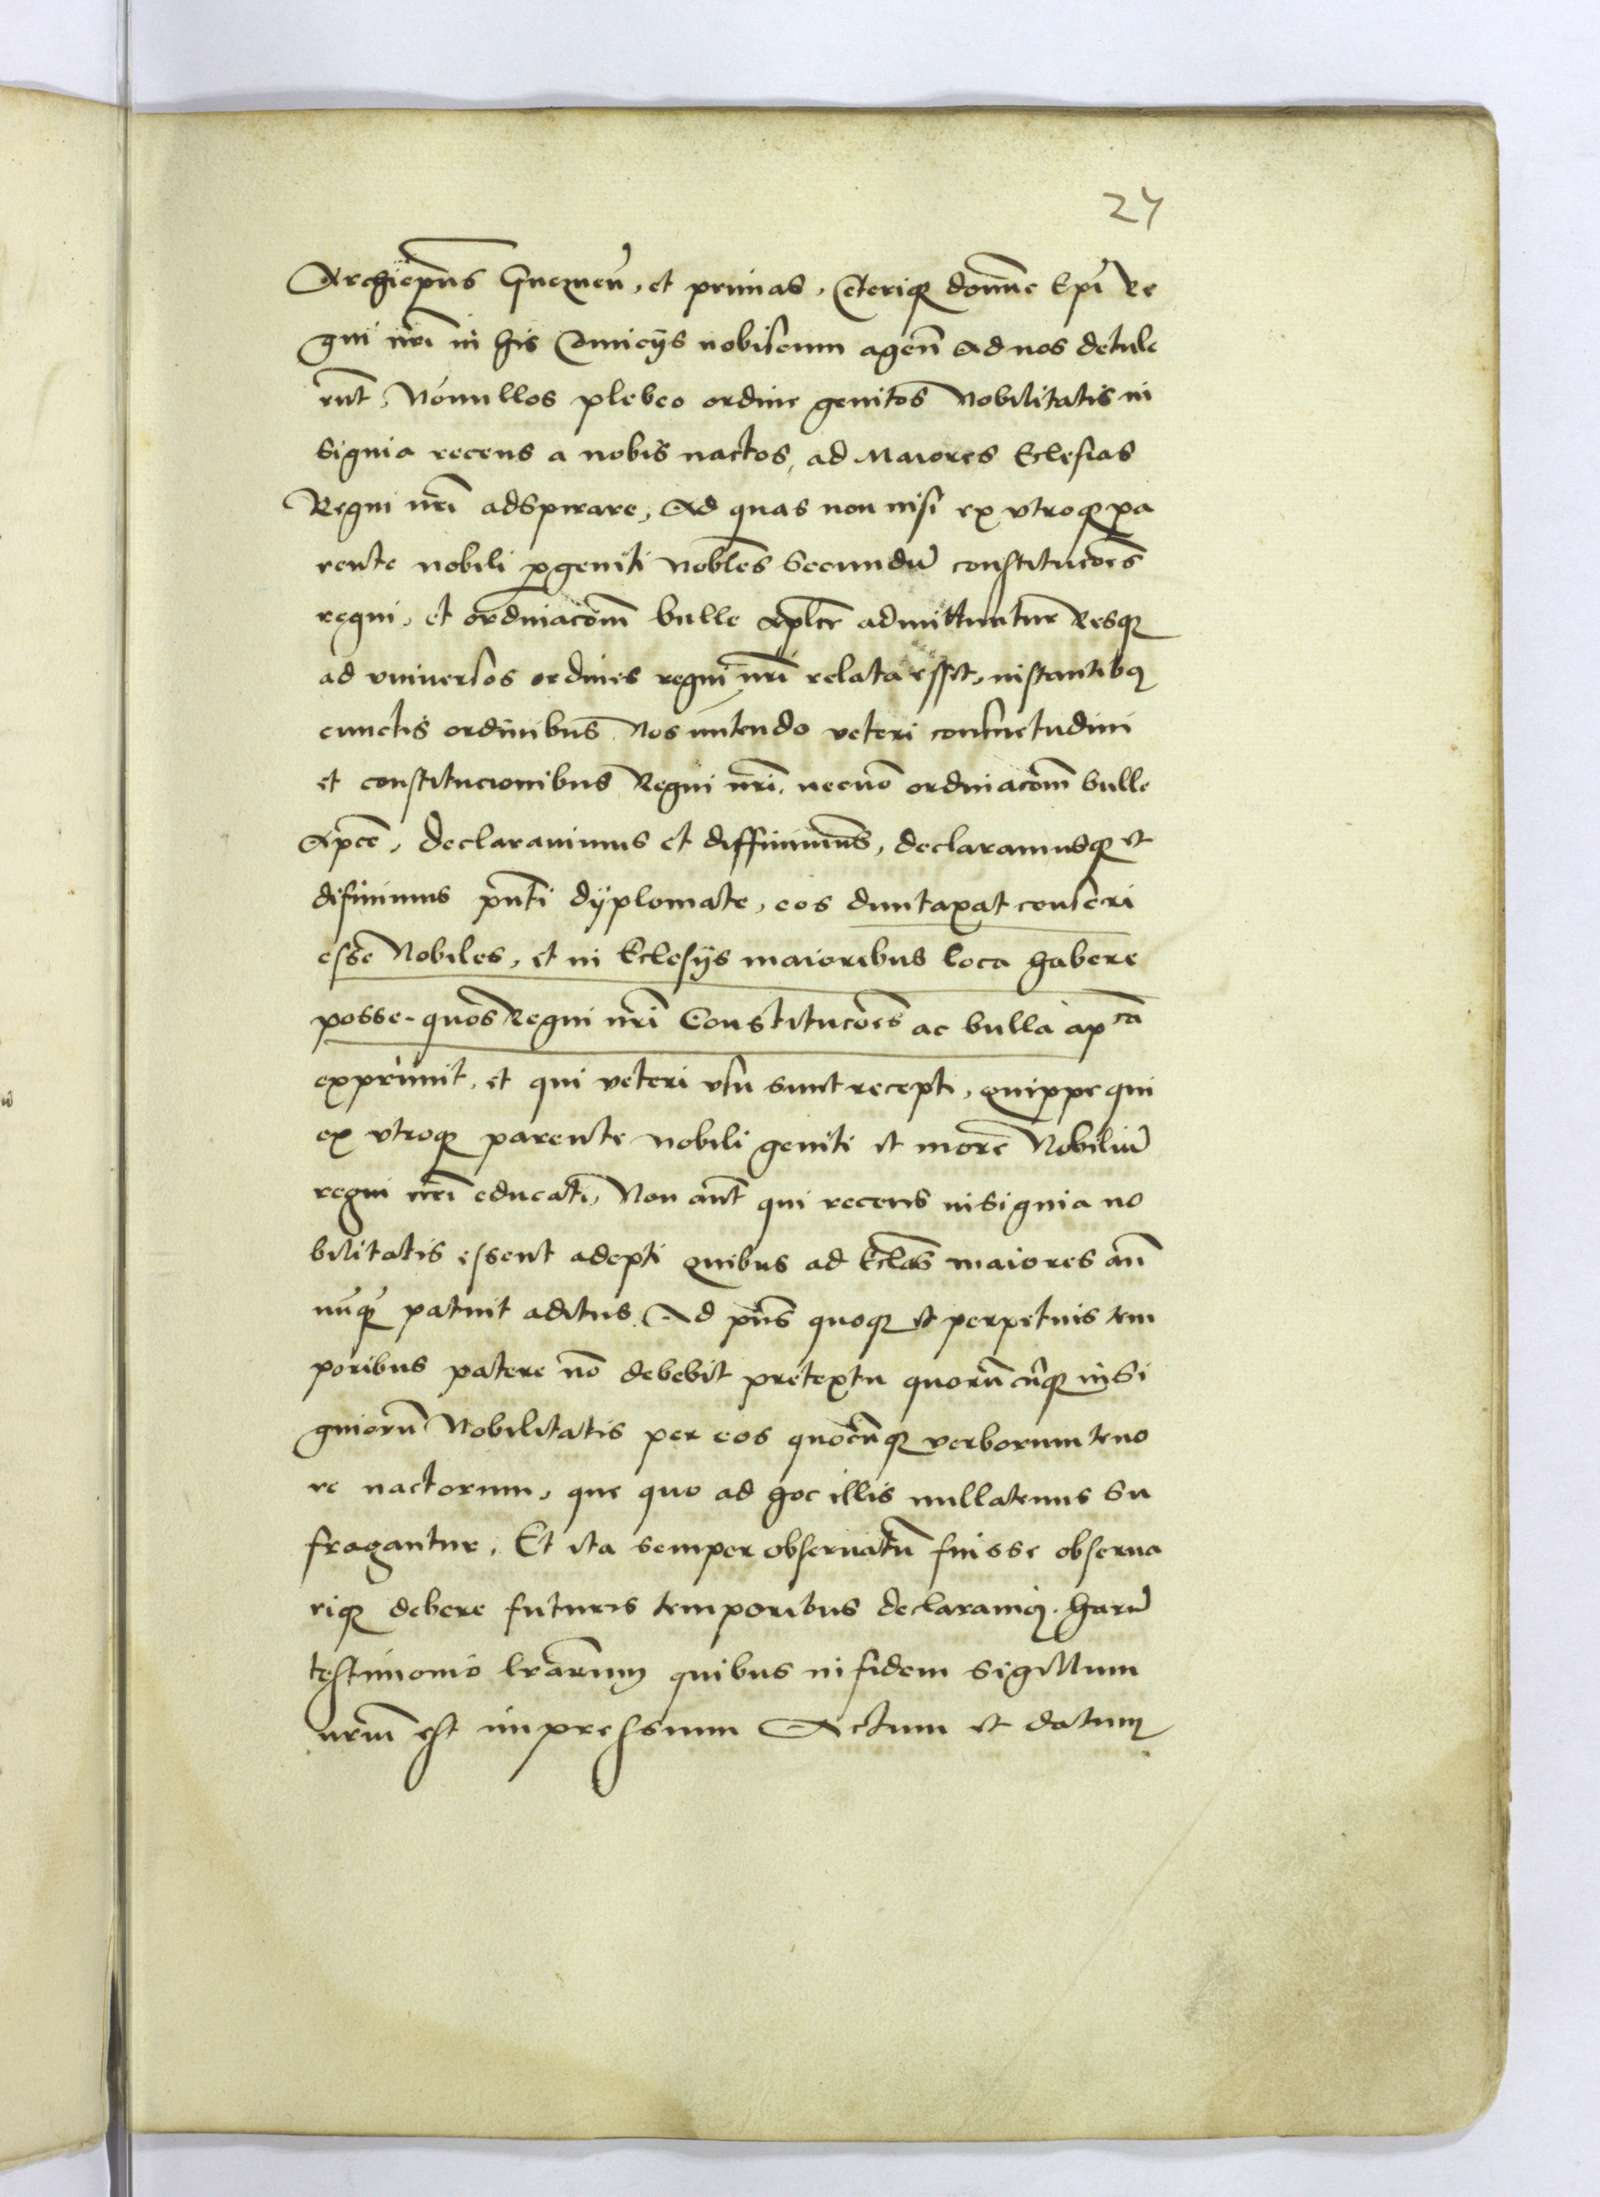 24
Archiepūs Gneznen̄, et primas, Ceteriqꝫ domīne Epī Re
gni nr̄i in his Comicijs nobiscum agen̄ Ad nos detule
rūt, Nōnullos plebeo ordine genitos Nobilitatis in
signia recens a nobis nactos, ad Maiores Eclesias
Regni nr̄i adspirare, Ad quas non nisi ex vtroqꝫ pa
rente nobili ꝓgeniti Nobl̄es Secundū constitucōes
regni, et ordinacōm bulle Apl̄ce admittuntur Resqꝫ
ad vniuersos ordines regni nr̄i relata esset, instantibꝫ
cunctis ordinibus Nos innitendo veteri consuetudini
et constitucionibus Regni nr̄i, necnō ordinacōm bulle
Ap̄ce, declarauimus et diffiniuimus, declaramusqꝫ et
difinimus pn̄ti dyplomate, eos duntaxat censeri
esse Nobiles, et in Eclesijs maioribus loca habere
posse, quos Regni nr̄i Constitucōes ac bulla apᶜᵃ
exprimit, et qui veteri vsu sunt recepti, quippe qui
ex vtroqꝫ parente nobili geniti et more Nobiliū
regni nr̄i educati, Non aūt qui recens insignia no
bilitatis essent adepti quibus ad Ecl̄as maiores an̄
nūqꝫ patuit aditus Ad pn̄s quoqꝫ et perpetuis tem
poribus patere nō debebit pretextu quorūcūqꝫ insi
gniorū Nobilitatis per eos quocūqꝫ verborum teno
re nactorum, que quo ad hoc illis nullatenus Su
fragantur, Et ita semper obseruatū fuisse obserua
riqꝫ debere futuris temporibus declaramꝫ. harū
testimonio lr̄arum quibus in fidem sigillum
nr̄m est impressum Actum et datum